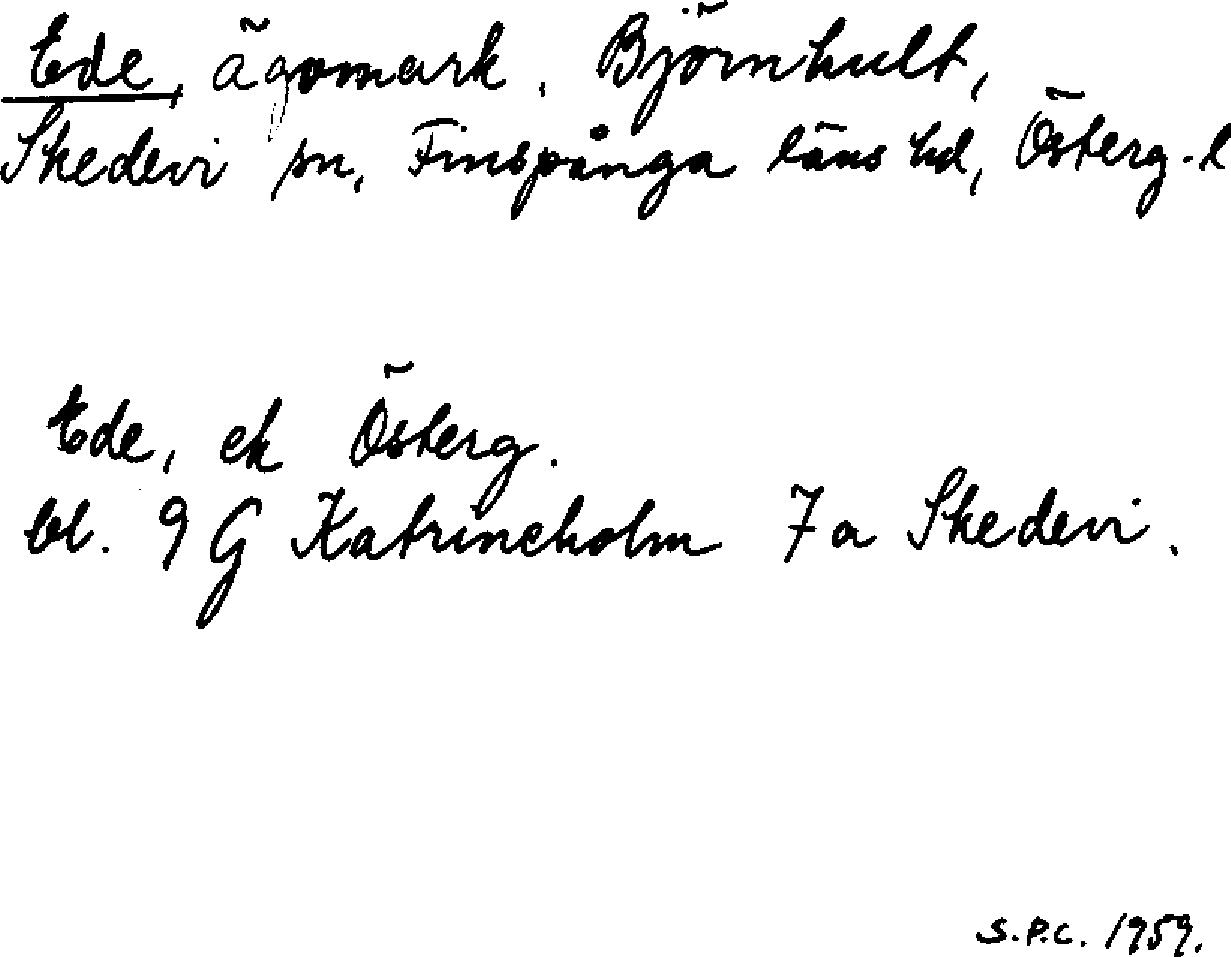 Ede, ägomark, Björnhult,
Skedevi sn, Finspånga läns hd, Österg. l
Ede, ek Österg.
bl. 9 G Katrineholm 7 a Skedevi.
S.P.C. 1959.